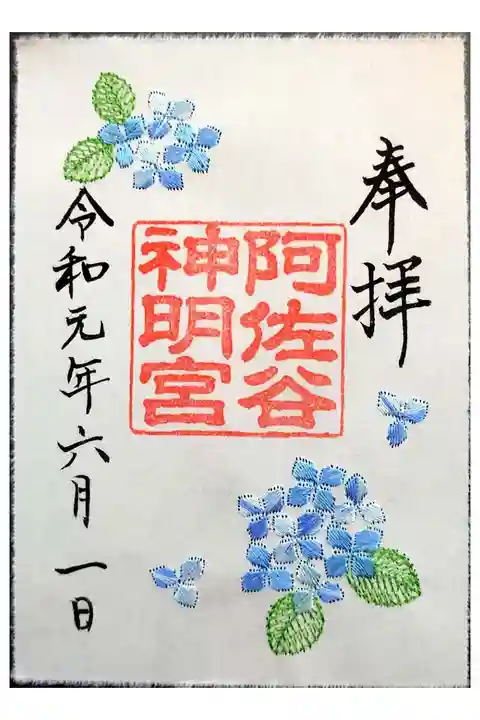 奉拝
阿佐谷
神明宮
令和元年六月一日